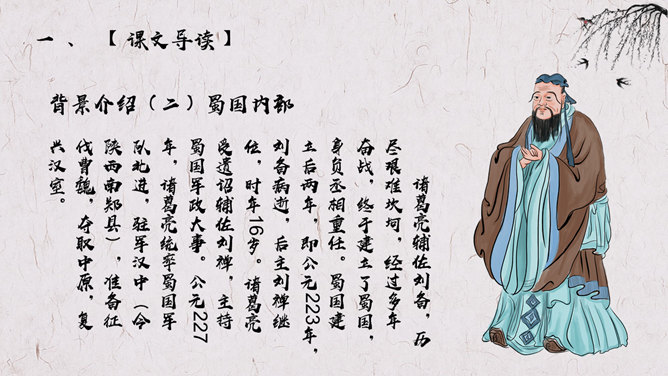 一、【课文导读】
背景介绍（二）蜀国内部
诸葛亮辅佐刘备，历
尽艰难坎坷，经过多年
奋战，终于建立了蜀国，
身负丞相重任。蜀国建
立后两年，即公元223年，
刘备病逝，后主刘禅继
位，时年16岁。诸葛亮
受遗诏辅佐刘禅，主持
蜀国军政大事。公元227
年，诸葛亮统率蜀国军
队北进，驻军汉中（今
陕西南郑县），准备征
伐曹魏，夺取中原，复
兴汉室。